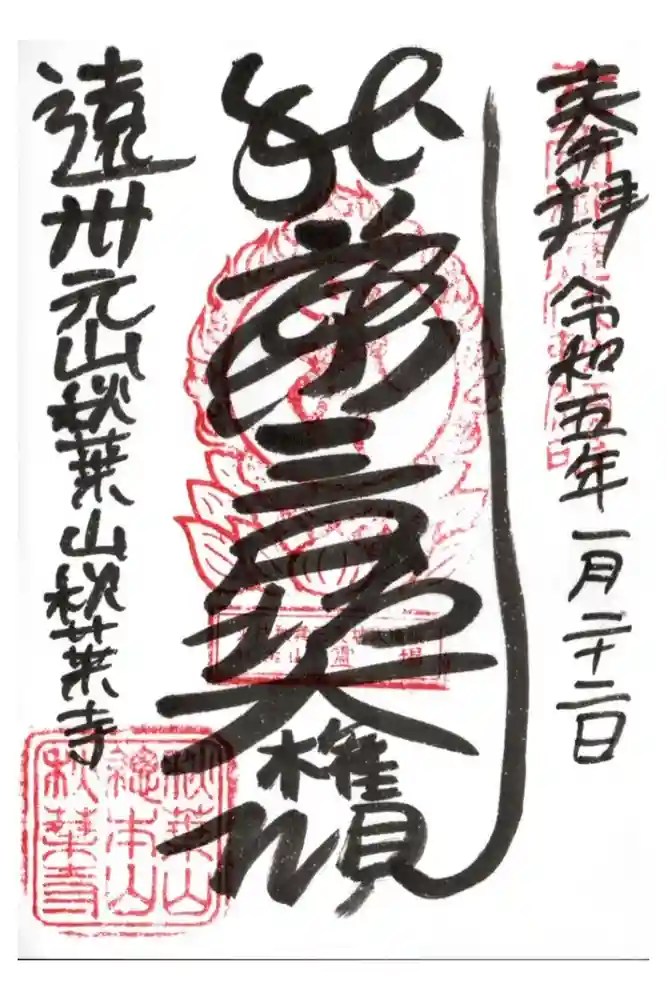 奉拝 令和五年一月二十二日
秋葉三尺坊大權現
遠州元山秋葉山秋葉寺
秋葉山
總本山
秋葉寺